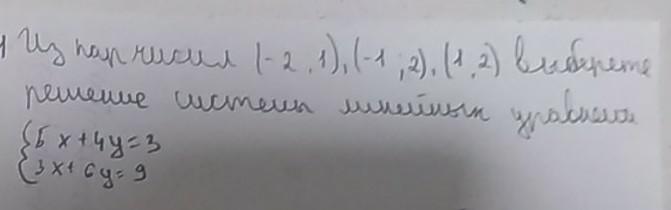 1 Из пар чисил (-2,1), (-1;2), (1,2) выберете
решение системы линейных уравнени
{5x+4y=3
{3x+6y=9